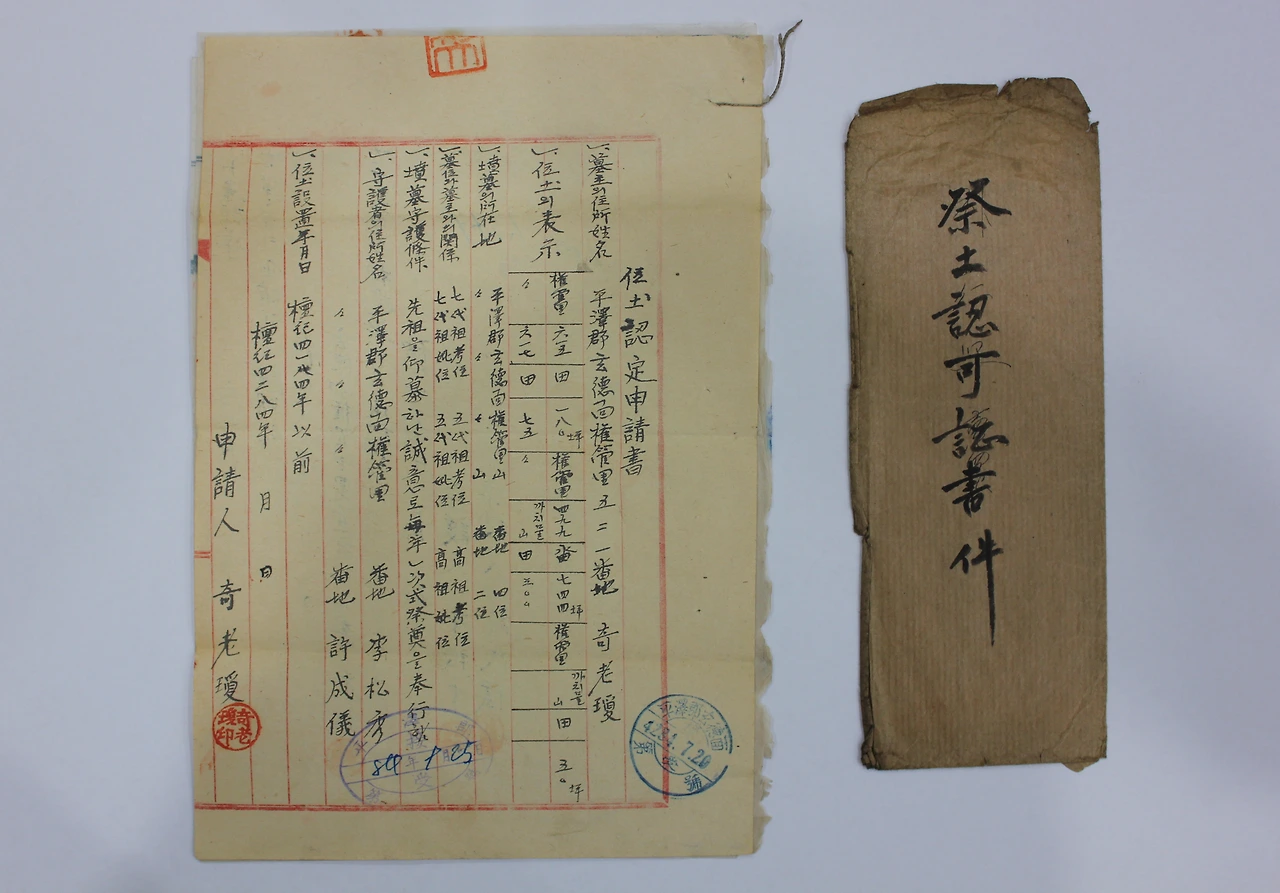 祭土認可諸書件
位土認定申請書
一、墓主의住所姓名 平澤郡玄德面權管里五二一番地 奇老瓊
一、位土의表示
權管里 六一五 田 一八〇坪 權管里 四九九 畓 七四四坪 權管里 까치물 山 田 五〇坪
〃 六一七 田 七五 〃 까치물 山 田 三〇〇
一、墳墓의所在地 平澤郡玄德面權管里山 番地 四位
〃 〃 〃 山 番地 二位
一、墓位와墓主와의関係 七代祖考位 五代祖考位 高祖考位
七代祖妣位 五代祖妣位 高祖妣位
一、墳墓守護條件 先祖을仰慕하난誠意로每年一次式祭奠을奉行함
一、守護者의住所姓名 平澤郡玄德面權管里 番地 李松彦
〃 〃 〃 番地 許成儀
一、位土設置年月日 檀記四一六四年以前
檀紀四二八四年 月 日
申請人 奇老瓊
奇老瓊印
4284.7.20
號
84 7 25